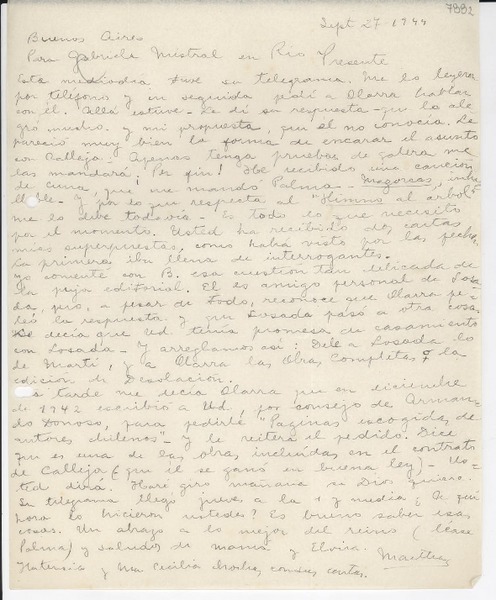 7992
Sept 27-1944
Buenos Aires
Para Gabriela Mistral en Río Presente
Este mediodía tuve su telegrama. Me lo leyeron
por teléfono y en seguida pedí a Olarra hablar
con él. Allá estuve. Le di su respuesta que lo ale-
gró mucho. y mi propuesta, que él no conocía. Le
pareció muy bien la forma de encarar el asunto
con Calleja. Apenas tenga pruebas de galera me
las mandará. Por fin! He recibido una canción
de cuna, que me mandó Palma
Y por lo que respecta al "Himno al árbol"
me lo debe todavía. Es todo lo que necesito
por el momento. Usted ha recibido dos cartas
mías superpuestas, como habrá visto por las fechas.
La primera iba llena de interrogantes.
Yo comenté con B. esa cuestión tan delicada de
la puja editorial. El es amigo personal de Losa-
da, pero, a pesar de todo, reconoce que Olarra pi-
dió la respuesta y que Losada pasó a otra cosa.
Le decía que Ud tenía promesa de casamiento
con Losada. Y arreglamos así: Déle a Losada lo
de Martí, y a Olarra las Obras Completas y la
edición de Desolación.
tarde me decía Olarra que en diciembre
de 1942 escribió a Ud, por consejo de Arman-
do Donoso, para pedirle "Páginas escogidas de
autores chilenos" y le reitera el pedido. Dice
que es una de las obras incluidas en el contrato
de Calleja (que él se ganó en buena ley) - Us-
ted dirá. Haré giro mañana si Dios quiere.
Su telegrama llegó jueves a la 1 y media; a qué
hora lo hicieron ustedes? Es bueno saber esas
cosas. Un abrazo a lo mejor del reino (léase
Palma) y saludos de mamá y Elvira.
Hortensia y Ma Cecilia